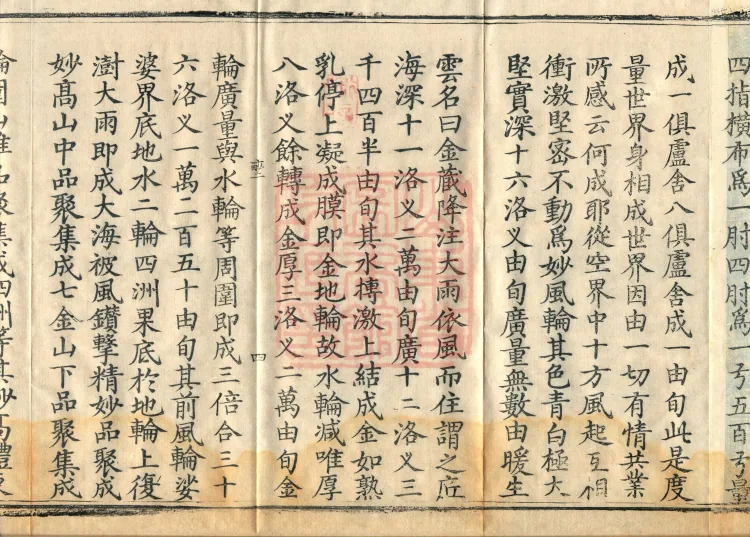 四指橫布爲一肘四肘爲一弓五百弓量
成一俱盧舍八俱盧舍成一由旬此是度
量世界身相成世界因由一切有情共業
所感云何成耶從空界中十方風起互相
衝激堅密不動爲妙風輪其色青白極大
堅實深十六洛义由旬廣量無數由暖生
雲名曰金藏降注大雨依風而住謂之底
海深十一洛义二萬由旬廣十二洛义三
千四百半由旬其水摶激上結成金如熟
乳停上凝成膜即金地輪故水輪减唯厚
八洛义餘轉成金厚三洛义二萬由旬金
輪廣量與水輪等周圍即成三倍合三十
六洛义一萬二百五十由旬其前風輪娑
婆界底地水二輪四洲果底於地輪上復
澍大雨即成大海被風鑽擊精妙品聚成
妙高山中品聚集成七金山下品聚集成
輪圍山唯品聚集成四洲等其妙高體東
四